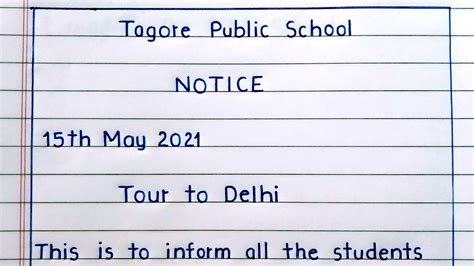 Tagore Public School
NOTICE
15th May 2021
Tour to Delhi
This is to inform all the students